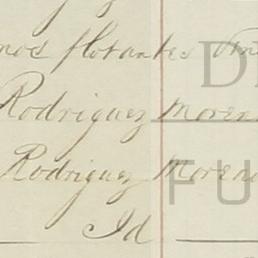 nos flotantes
Rodriguez Moreno
Rodriguez Moreno
Id